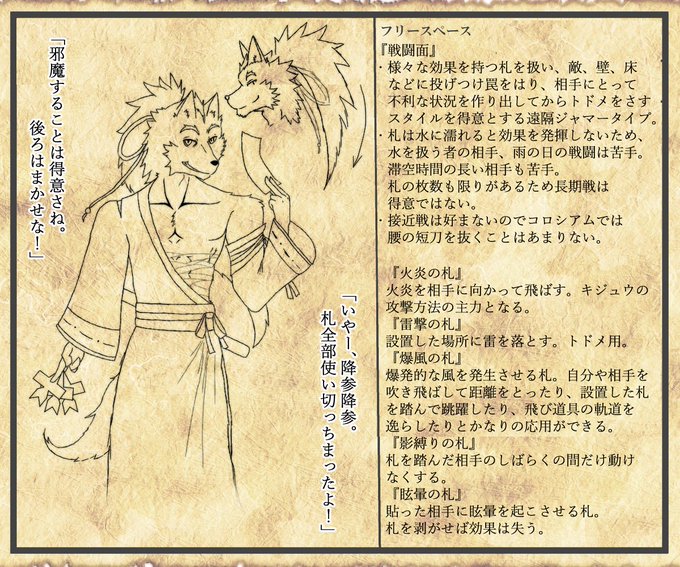 「邪魔することは得意さね。
後ろはまかせな！」
「いやー、降参降参。
札全部使い切っちまったよ！」
フリースペース
『戦闘面』
・様々な効果を持つ札を扱い、敵、壁、床
などに投げつけ罠をはり、相手にとって
不利な状況を作り出してからトドメをさす
スタイルを得意とする遠隔ジャマータイプ。
・札は水に濡れると効果を発揮しないため、
水を扱う者の相手、雨の日の戦闘は苦手。
滞空時間の長い相手も苦手。
札の枚数も限りがあるため長期戦は
得意ではない。
・接近戦は好まないのでコロシアムでは
腰の短刀を抜くことはあまりない。
『火炎の札』
火炎を相手に向かって飛ばす。キジュウの
攻撃方法の主力となる。
『雷撃の札』
設置した場所に雷を落とす。トドメ用。
『爆風の札』
爆発的な風を発生させる札。自分や相手を
吹き飛ばして距離をとったり、設置した札
を踏んで跳躍したり、飛び道具の軌道を
逸らしたりとかなりの応用ができる。
『影縛りの札』
札を踏んだ相手のしばらくの間だけ動け
なくする。
『眩暈の札』
貼った相手に眩暈を起こさせる札。
札を剥がせば効果は失う。